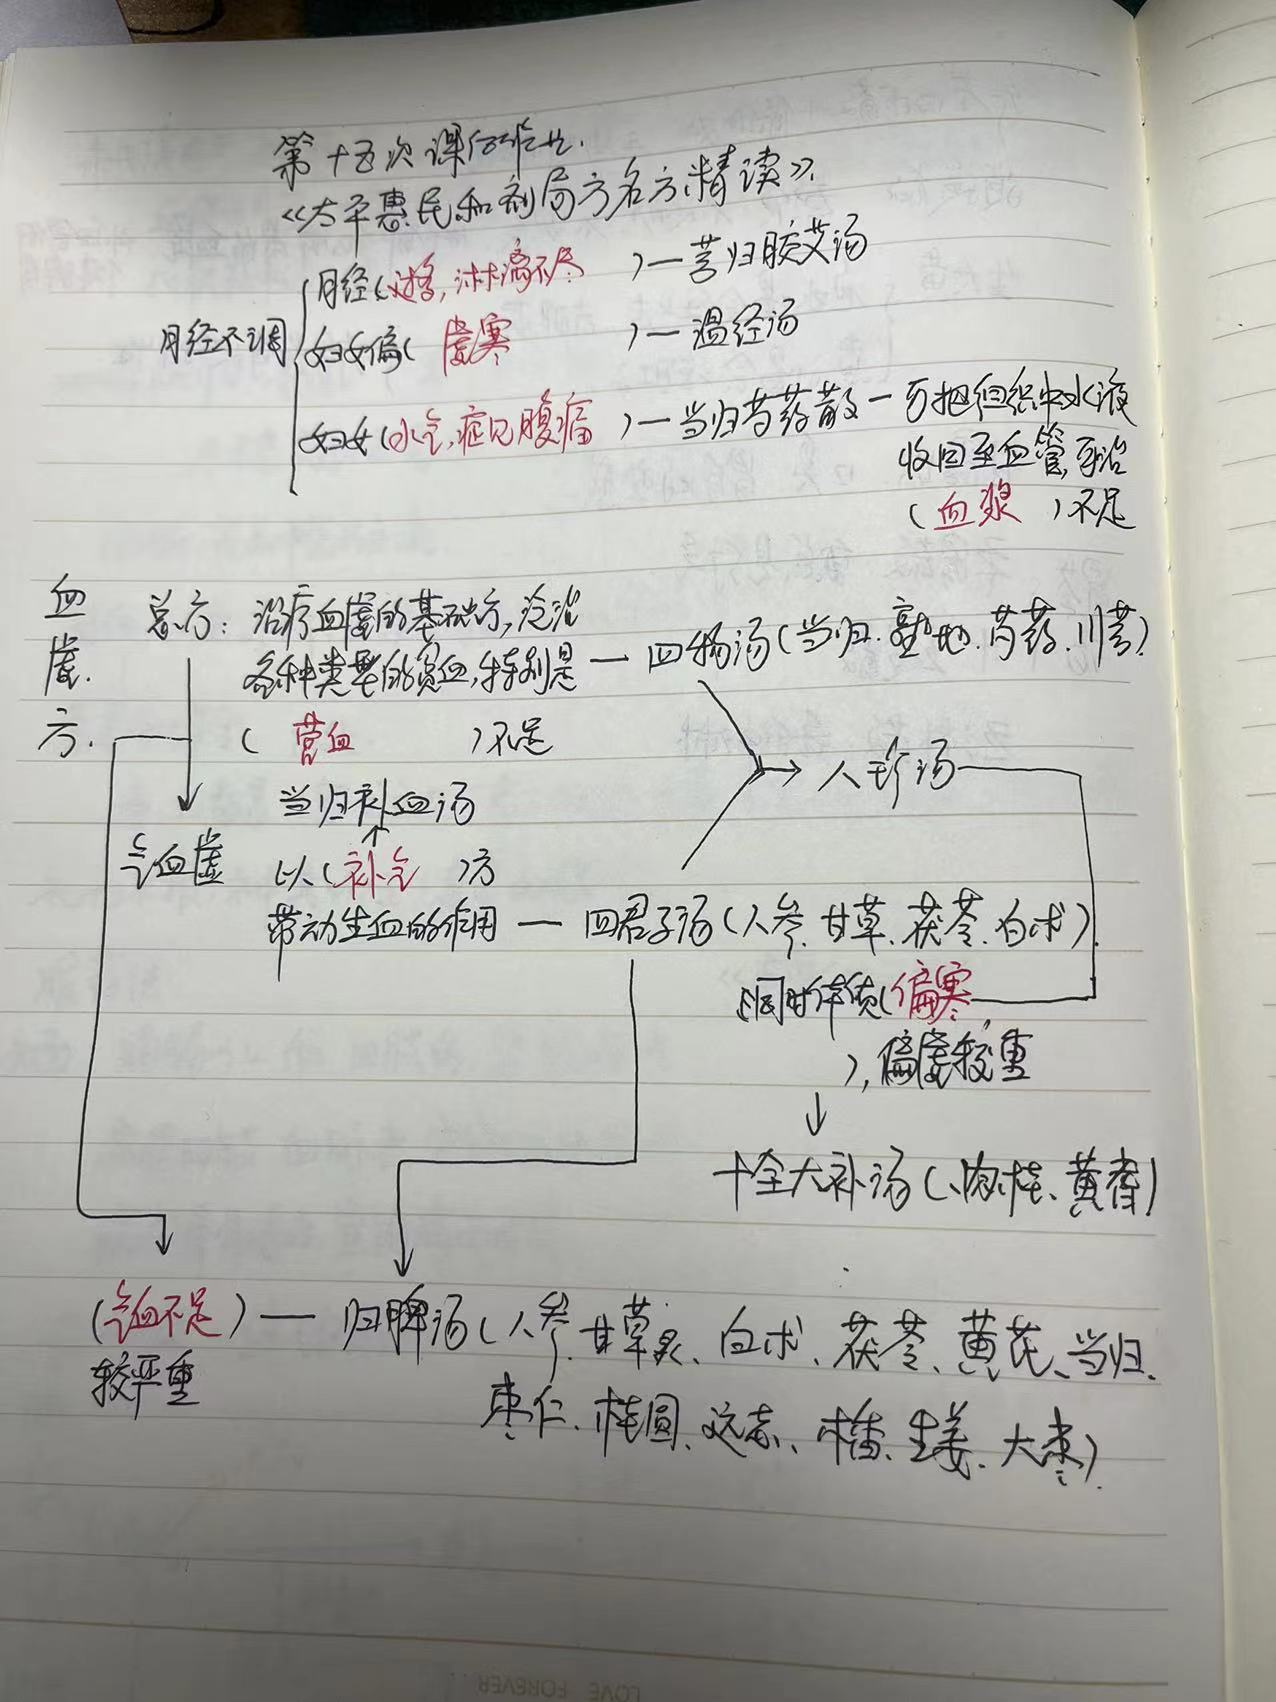 第十五次课作业.
《太平惠民和剂局方名方精读》.
月经不调
月经(过多,淋漓不尽 )—芎归胶艾汤
妇女偏( 虚寒 )—温经汤
妇女(水气,症见腹痛 )—当归芍药散—可把组织中水液
收回至血管,可治
( 血浆 )不足
血虚.方.
总方: 治疗血虚的基础方,泛治
各种类型的贫血,特别是 — 四物汤(当归.熟地.芍药.川芎)
( 营血 )不足
→ 八珍汤
当归补血汤
↑
气血虚 以(补气 )方
带动生血的作用 — 四君子汤(人参.甘草.茯苓.白术).
同时体质(偏寒
),偏虚较重
↓
十全大补汤(、肉桂、黄耆)
(气血不足)— 归脾汤(人参.甘草炙、白术、茯苓、黄芪、当归.
较严重
枣仁.桂圆.远志、木香.生姜.大枣).
LOVE FOREVER